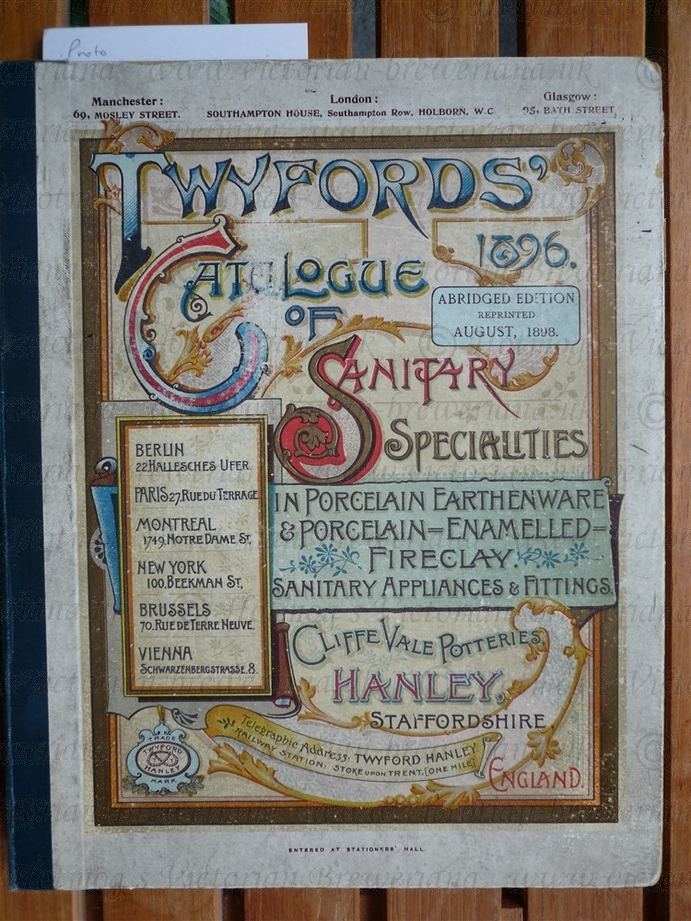 Photo
Manchester:
69, MOSLEY STREET.
London:
SOUTHAMPTON HOUSE, Southampton Row, HOLBORN, W.C.
Glasgow:
95, BATH STREET
TWYFORDS'
CATALOGUE
1896.
OF
ABRIDGED EDITION
REPRINTED
AUGUST, 1898.
SANITARY
SPECIALITIES
BERLIN
22. HALLESCHES UFER.
PARIS 27, RUE DU TERRAGE
MONTREAL
1749, NOTRE DAME ST,
NEW YORK
100, BEEKMAN ST,
BRUSSELS
70. RUE DE TERRE NEUVE.
VIENNA
SCHWARZENBERGSTRASSE. 8.
IN PORCELAIN EARTHENWARE
& PORCELAIN=ENAMELLED=
FIRECLAY.
SANITARY APPLIANCES & FITTINGS.
CLIFFE VALE POTTERIES,
HANLEY,
STAFFORDSHIRE
Telegraphic Address: TWYFORD HANLEY.
RAILWAY STATION: STOKE UPON TRENT, (ONE MILE)
ENGLAND.
TRADE
TWYFORD
HANLEY
MARK
ENTERED AT STATIONERS' HALL.